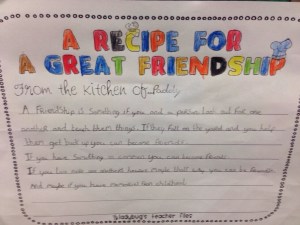 A RECIPE FOR
A GREAT FRIENDSHIP
From the kitchen of
A Friendship is Something if you and a person look out for one
another and teach them things. If they fall on the ground and you help
them get back up you can become friends.
If you have Something in common you can become friends.
If you look after one another maybe that why you can be friends
And maybe if you
Ladybug's Teacher Files